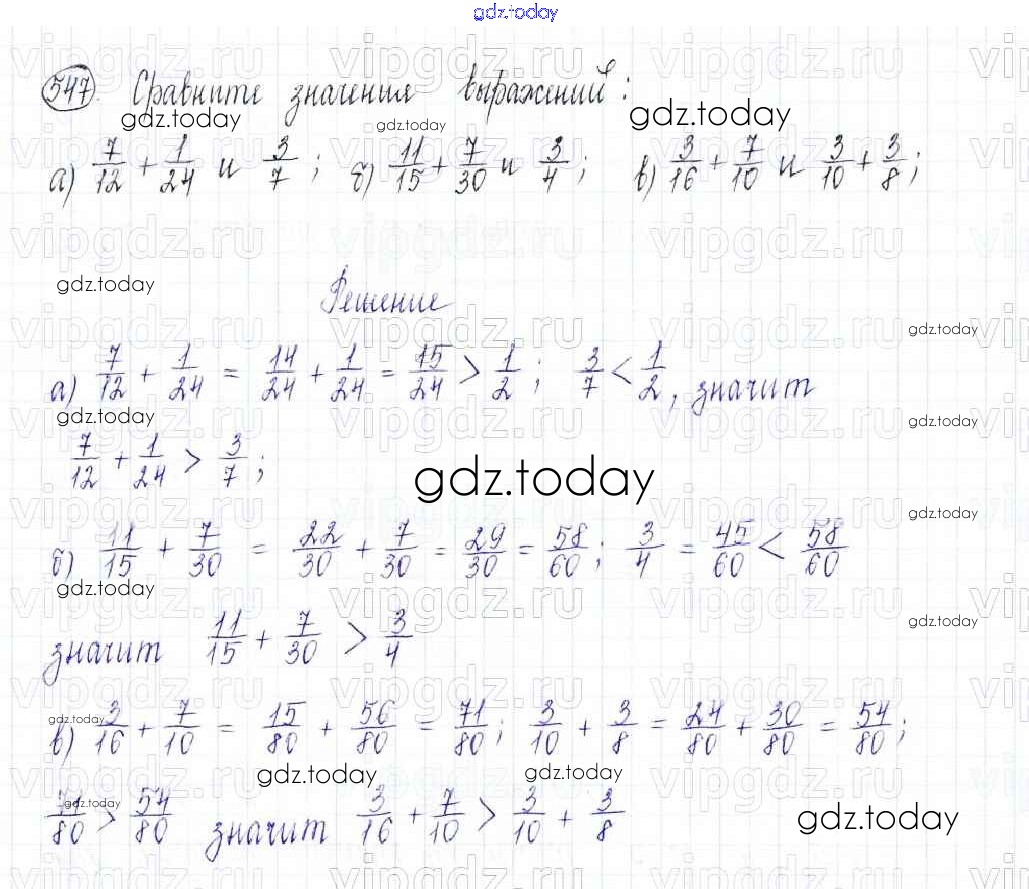 gdz.today
547. Сравните значения выражений:
gdz.today gdz.today gdz.today
а) 7/12 + 1/24 и 3/7; б) 11/15 + 7/30 и 3/4; в) 3/16 + 7/10 и 3/10 + 3/8;
gdz.today
Решение
gdz.today
а) 7/12 + 1/24 = 14/24 + 1/24 = 15/24 > 1/2; 3/7 < 1/2, значит
gdz.today gdz.today
7/12 + 1/24 > 3/7;
gdz.today
gdz.today
б) 11/15 + 7/30 = 22/30 + 7/30 = 29/30 = 58/60; 3/4 = 45/60 < 58/60
gdz.today
gdz.today
значит 11/15 + 7/30 > 3/4
gdz.today
в) 3/16 + 7/10 = 15/80 + 56/80 = 71/80; 3/10 + 3/8 = 24/80 + 30/80 = 54/80;
gdz.today gdz.today
gdz.today
71/80 > 54/80 значит 3/16 + 7/10 > 3/10 + 3/8
gdz.today
vipgdz.ru vipgdz.ru vipgdz.ru